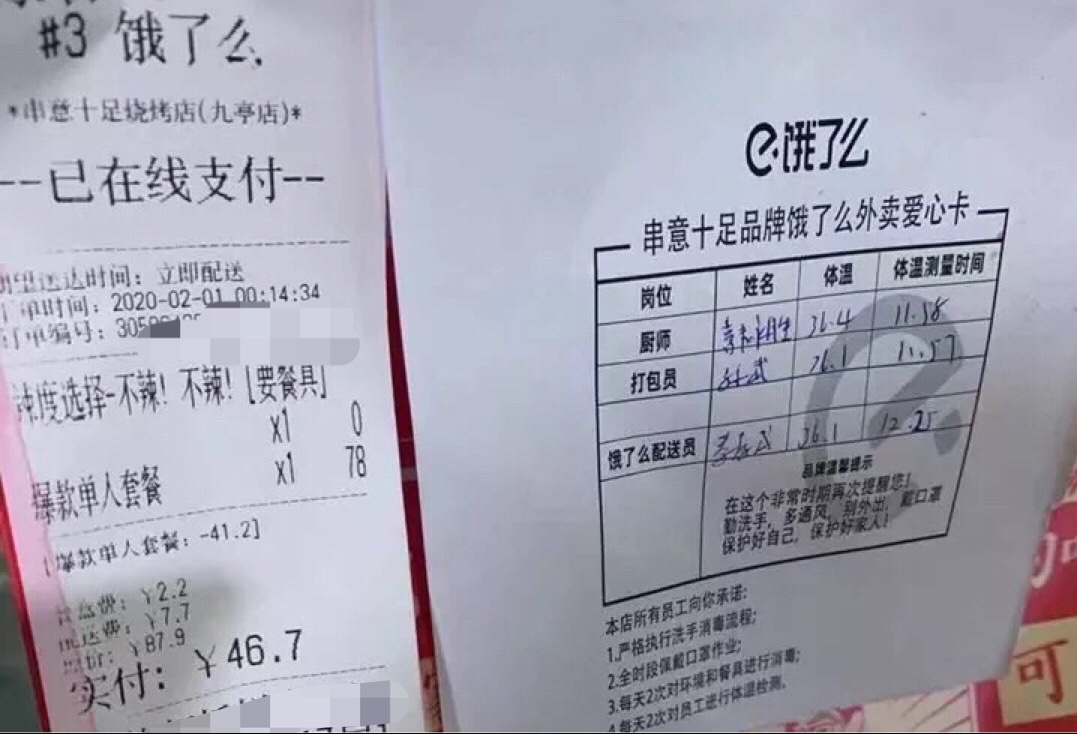 #3 饿了么
*串意十足烧烤店(九亭店)*
--已在线支付--
望送达时间: 立即配送
单时间: 2020-02-01 00:14:34
订单编号: 305
辣度选择-不辣! 不辣! [要餐具]
x1 0
爆款单人套餐 x1 78
[爆款单人套餐: -41.2]
餐盒费: ¥2.2
配送费: ¥7.7
¥87.9
实付: ¥46.7
饿了么
串意十足品牌饿了么外卖爱心卡
岗位 姓名 体温 体温测量时间
厨师 36.4 11.58
打包员 36.1 11.57
饿了么配送员 36.1 12.25
品牌温馨提示
在这个非常时期再次提醒您!
勤洗手, 多通风, 别外出, 戴口罩
保护好自己, 保护好家人!
本店所有员工向你承诺:
1.严格执行洗手消毒流程;
2.全时段佩戴口罩作业;
3.每天2次对环境和餐具进行消毒;
4.每天2次对员工进行体温检测。
可